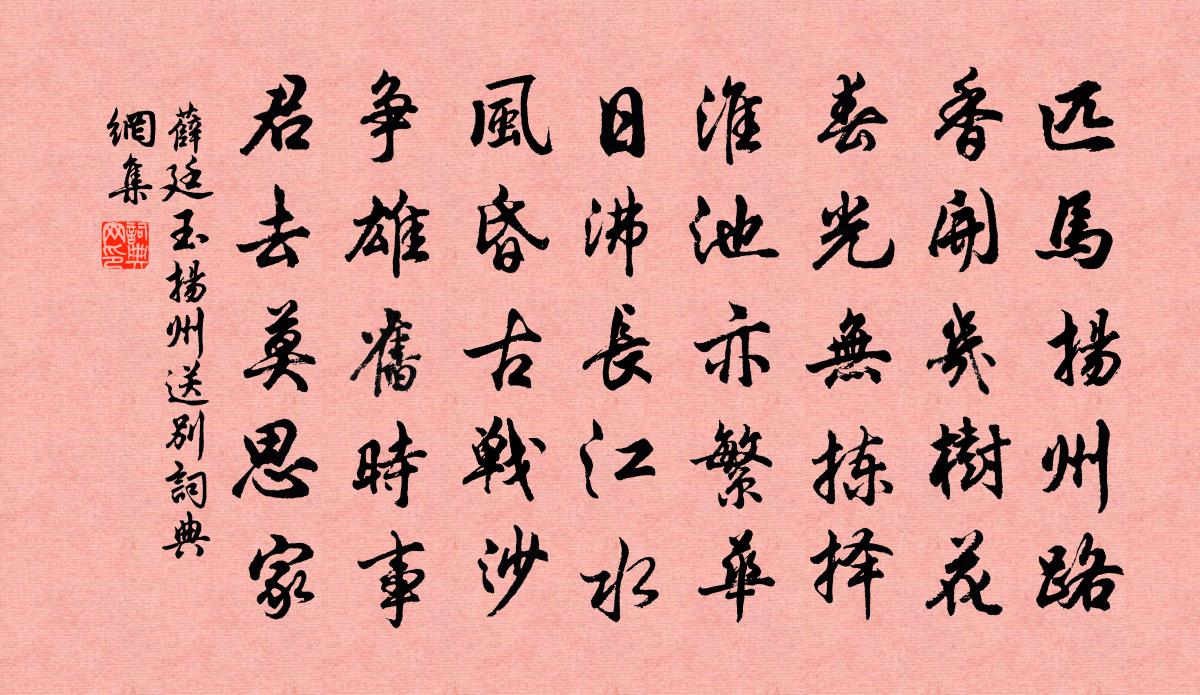 匹馬揚州路
香開幾樹花
春光無揀择
淮池亦繁華
日沸長江水
風昏古戰沙
争雄舊時事
君去莫思家
薛廷玉揚州送別詞典
網集
詞典
网印